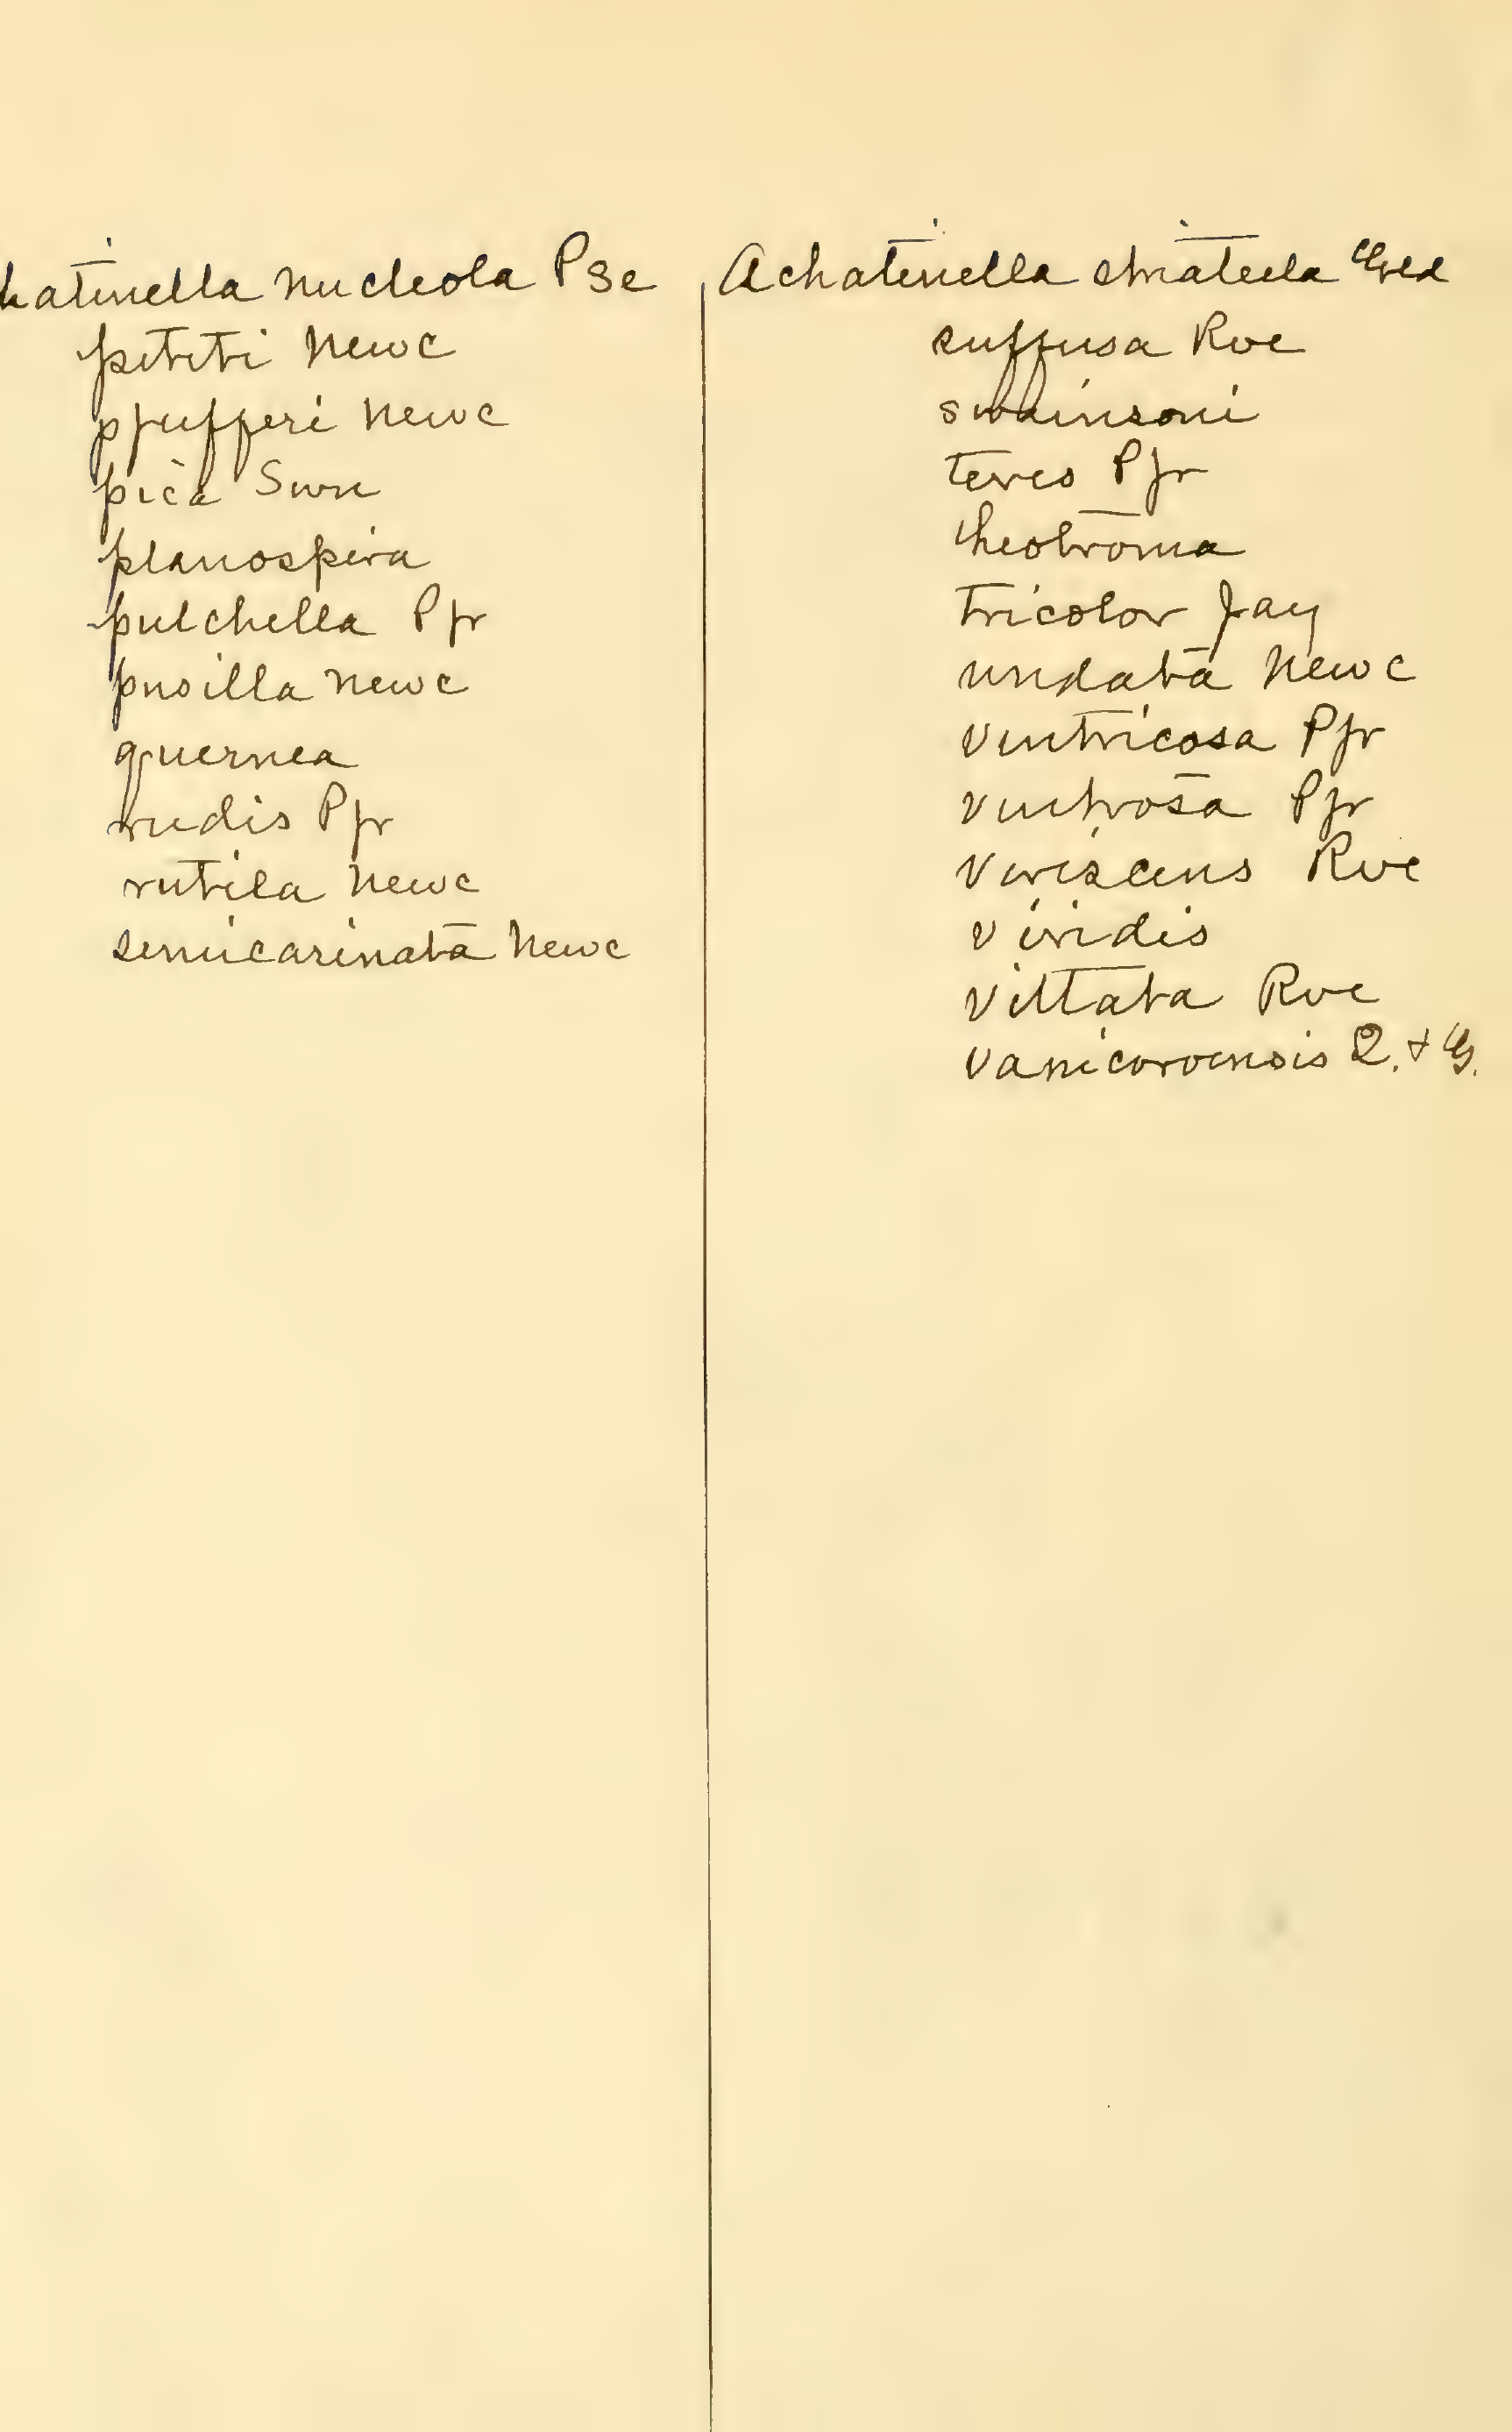 hatinella nucleola Pse
petiti Newc
pfeifferi Newc
pica Swn
planospira
pulchella Pfr
pusilla Newc
quernea
rudis Pfr
rutila Newc
semicarinata Newc
Achatinella striatula Gld
suffusa Rve
swainsoni
teres Pfr
theobroma
tricolor Jay
undata Newc
ventricosa Pfr
ventrosa Pfr
virescens Rve
viridis
vittata Rve
vanicoroensis Q. + G.